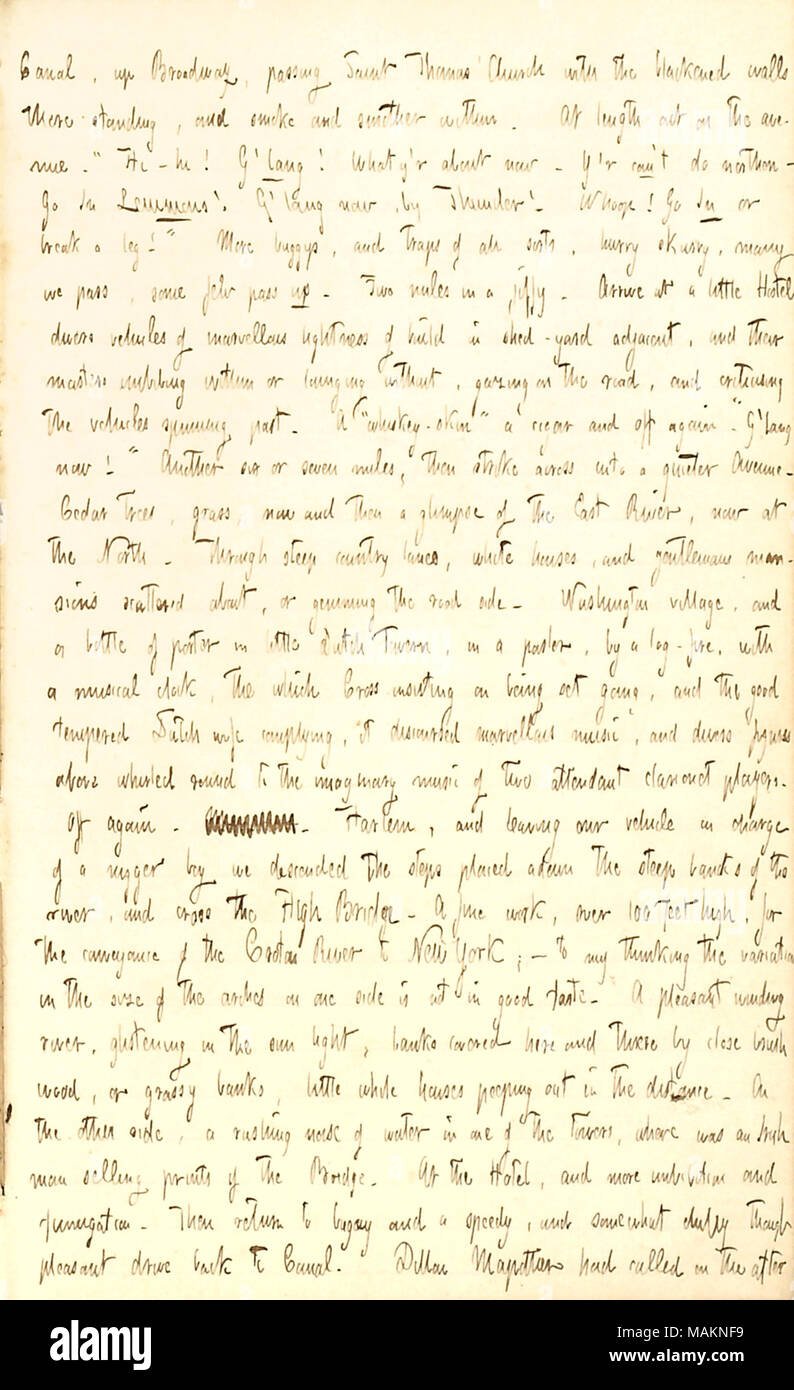 Canal, up Broadway, passing Saint Thomas' Church with the blackened walls
there standing, and smoke and smother within. At length out on the ave-
nue. "Hi - hi! G'lang! What y'r about now - Y'r can't do nothen -
Go in Lemmons'. G'lang now, by Thunder'. Whoop! Go in or
break a leg!" More buggys, and traps of all sorts, hurry skurry, many
we pass, some few pass us. Two miles in a jiffy. Arrive at a little Hotel
divers vehicles of marvellous lightness of build in shed-yard adjacent, and their
masters imbibing within or lounging without, gazing on the road, and criticising
the vehicles spinning past. A "whiskey-skin" a cigar and off again. "G'lang
now!" Another six or seven miles, then strike across into a quieter Avenue.
Cedar Trees, grass, now and then a glimpse of the East River, now at
the North. Through steep country lanes, white houses, and gentlemans man-
sions scattered about, or gemming the road side. Washington village, and
a bottle of porter in little Dutch Tavern, in a parlor, by a log-fire, with
a musical clock, the which Cross insisting on being set going, and the good
tempered Dutch wife complying, it discoursed "marvellous music", and divers figures
above whirled round to the imaginary music of two attendant clarionet players.
Off again. Harlem, and leaving our vehicle in charge
of a nigger boy we descended the steps placed adown the steep banks of the
river, and cross the High Bridge. A fine work, over 100 feet high, for
the conveyance of the Croton River to New York; - to my thinking the variation
in the size of the arches on one side is not in good taste. A pleasant winding
river, glistening in the sun light, banks covered here and there by close brush
wood, or grassy banks, little white houses peeping out in the distance. On
the other side, a rushing noise of water in one of the towers, where was an Irish
man selling prints of the Bridge. At the Hotel, and more imbibition and
fumigation. Then return to buggy and a speedy, and somewhat chilly though
pleasant drive back to Canal. Dillon Mapother had called in the after
alamy
Image ID: MAKNF9
www.alamy.com